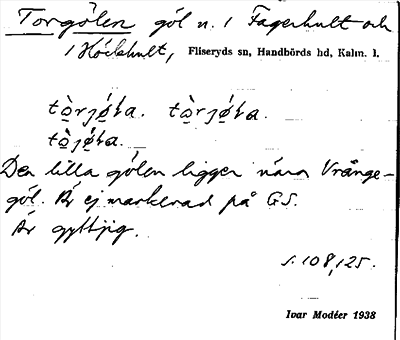 Torgölen göl n. i Fagerhult och
i Höckhult, Fliseryds sn, Handbörds hd, Kalm. l.
Den lilla gölen ligger nära Vrånge-
göl. Är ej markerad på GS.
Är gyttjig.
s. 108, 125.
Ivar Modéer 1938